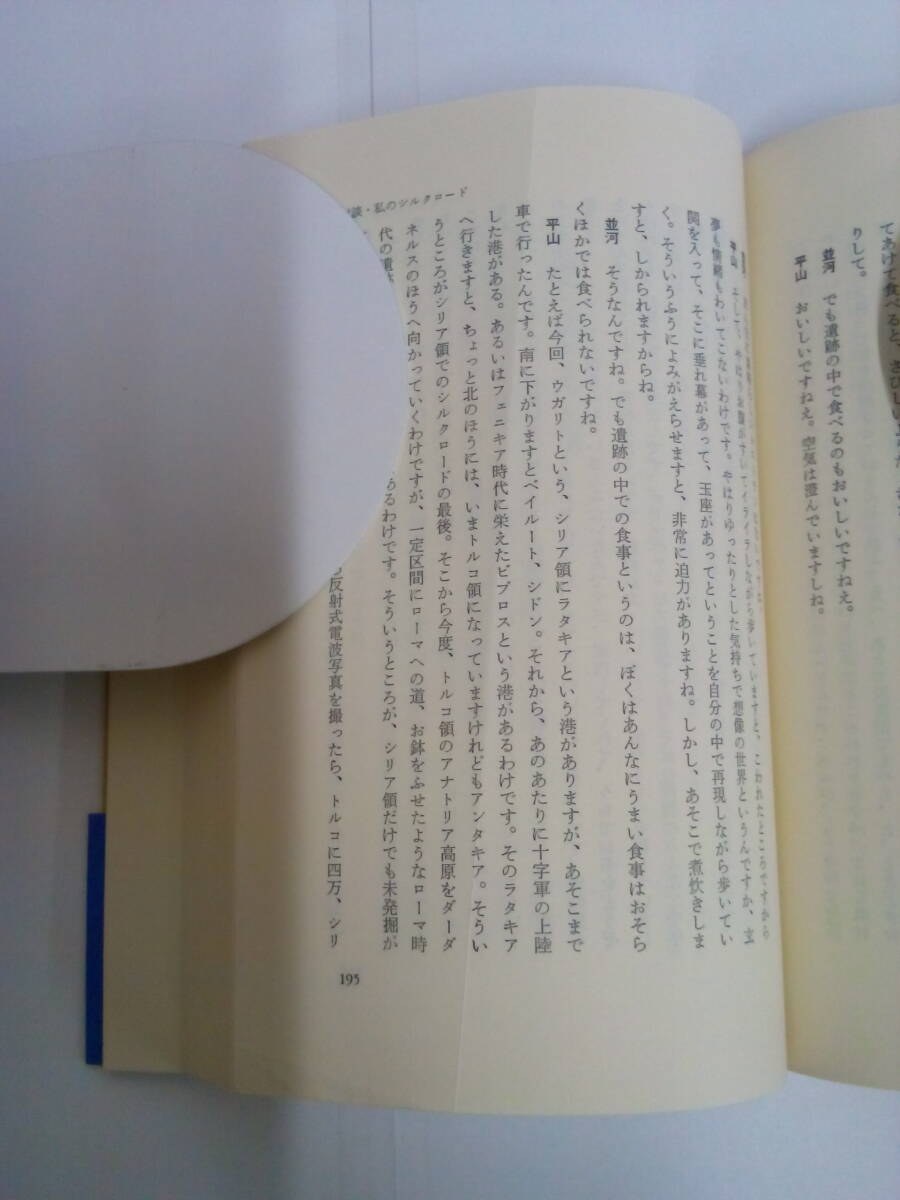 てあけて食べると、さびしい
りして。
並河　でも遺跡の中で食べるのもおいしいですねえ。
平山　おいしいですねえ。空気は澄んでいますしね。
談・私のシルクロード
平山　そして、やはりお腹がすいてイライラしながら歩いていますと、こわれたところですから
夢も情緒もわいてこないわけです。やはりゆったりとした気持ちで想像の世界というんですか、玄
関を入って、そこに垂れ幕があって、玉座があってということを自分の中で再現しながら歩いてい
く。そういうふうによみがえらせますと、非常に迫力がありますね。しかし、あそこで煮炊きしま
すと、しかられますからね。
並河　そうなんですね。でも遺跡の中での食事というのは、ぼくはあんなにうまい食事はおそら
くほかでは食べられないですね。
平山　たとえば今回、ウガリトという、シリア領にラタキアという港がありますが、あそこまで
車で行ったんです。南に下がりますとベイルート、シドン。それから、あのあたりに十字軍の上陸
した港がある。あるいはフェニキア時代に栄えたビブロスという港があるわけです。そのラタキア
へ行きますと、ちょっと北のほうには、いまトルコ領になっていますけれどもアンタキア。そうい
うところがシリア領でのシルクロードの最後。そこから今度、トルコ領のアナトリア高原をダーダ
ネルスのほうへ向かっていくわけですが、一定区間にローマへの道、お鉢をふせたようなローマ時
代の遺
あるわけです。そういうところが、シリア領だけでも未発掘が
反射式電波写真を撮ったら、トルコに四万、シリ
195